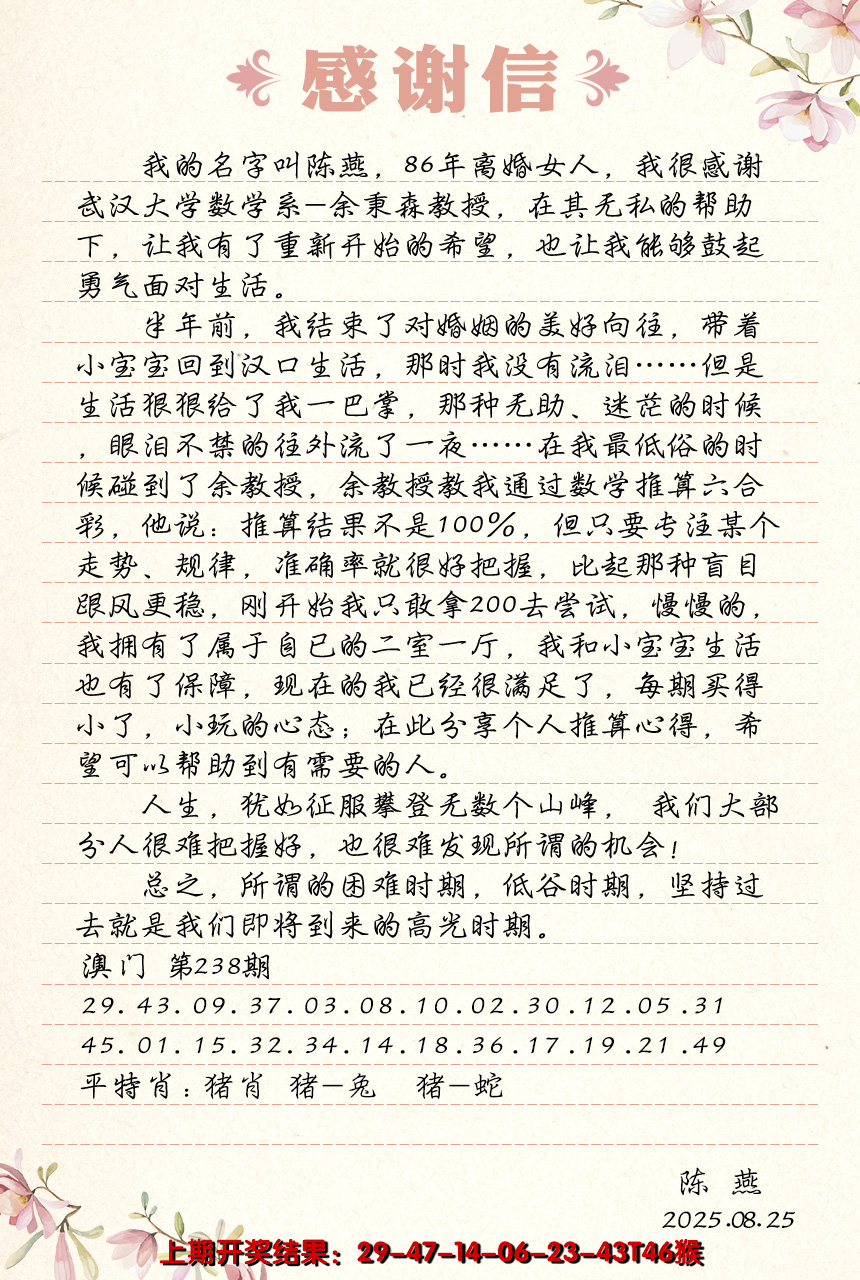 感谢信
我的名字叫陈燕，86年离婚女人，我很感谢
武汉大学数学系—余秉森教授，在其无私的帮助
下，让我有了重新开始的希望，也让我能够鼓起
勇气面对生活。
半年前，我结束了对婚姻的美好向往，带着
小宝宝回到汉口生活，那时我没有流泪……但是
生活狠狠给了我一巴掌，那种无助、迷茫的时候
，眼泪不禁的往外流了一夜……在我最低俗的时
候碰到了余教授，余教授教我通过数学推算六合
彩，他说：推算结果不是100%，但只要专注某个
走势、规律，准确率就很好把握，比起那种盲目
跟风更稳，刚开始我只敢拿200去尝试，慢慢的，
我拥有了属于自己的二室一厅，我和小宝宝生活
也有了保障，现在的我已经很满足了，每期买得
小了，小玩的心态；在此分享个人推算心得，希
望可以帮助到有需要的人。
人生，犹如征服攀登无数个山峰， 我们大部
分人很难把握好，也很难发现所谓的机会！
总之，所谓的困难时期，低谷时期，坚持过
去就是我们即将到来的高光时期。
澳门 第238期
29.43.09.37.03.08.10.02.30.12.05.31
45.01.15.32.34.14.18.36.17.19.21.49
平特肖：猪肖 猪—兔 猪—蛇
陈 燕
2025.08.25
上期开奖结果：29-47-14-06-23-43T46猴